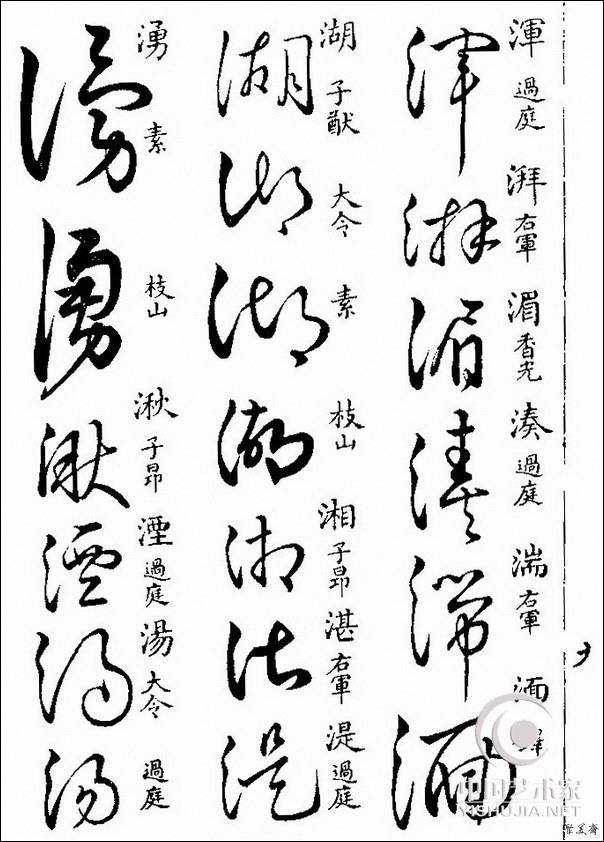 渾 過庭
湃 右軍
湄 香光
湊 過庭
湍 右軍
湎
湖 子猷
大令
素
枝山
湘 子昂
湛 右軍
湜 過庭
湧 素
枝山
湫 子昂
湮 過庭
湯 大令
過庭
中国艺术家
YISHUJIA.NET